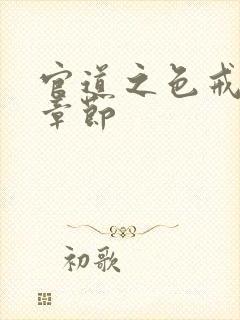 官道之色戒
章节
初歌